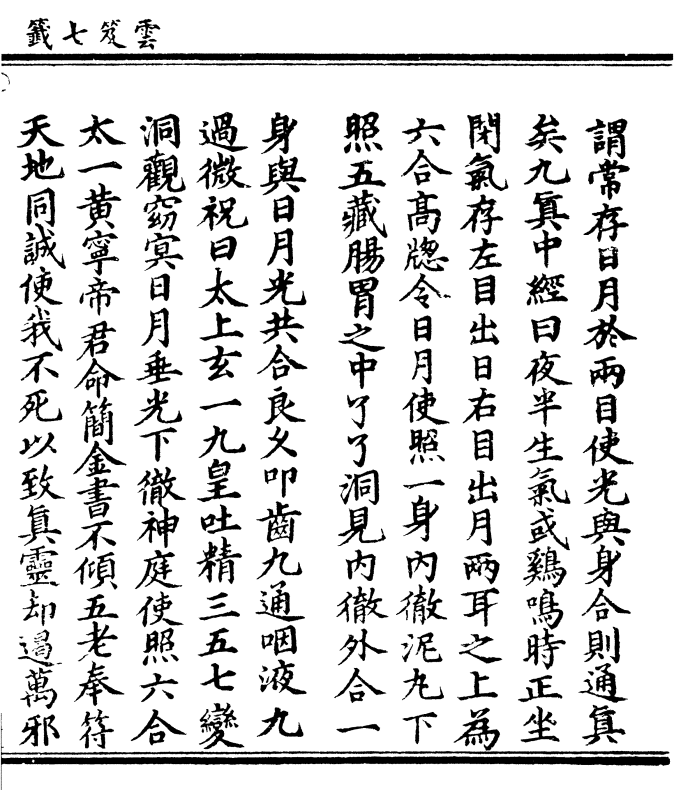 雲笈七籤
謂常存日月於兩目使光與身合則通眞
矣九眞中經曰夜半生氣或鷄鳴時正坐
閉氣存左目出日右目出月兩耳之上爲
六合高牕令日月使照一身內徹泥丸下
照五藏腸胃之中了了洞見內徹外合一
身與日月光共合良久叩齒九通咽液九
過微祝曰太上玄一九皇吐精三五七變
洞觀窈冥日月垂光下徹神庭使照六合
太一黃寧帝君命簡金書不傾五老奉符
天地同誠使我不死以致眞靈却遏萬邪